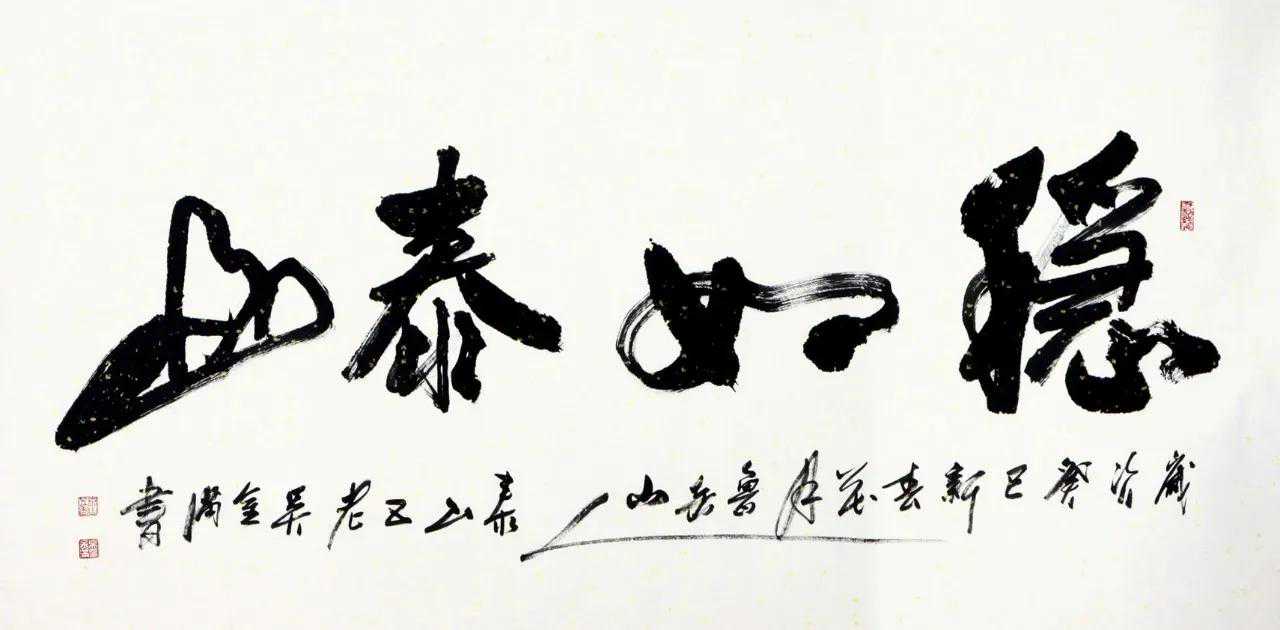 穩如泰山
歲次癸巳新春花月魯岳山人泰山五老吴金满書